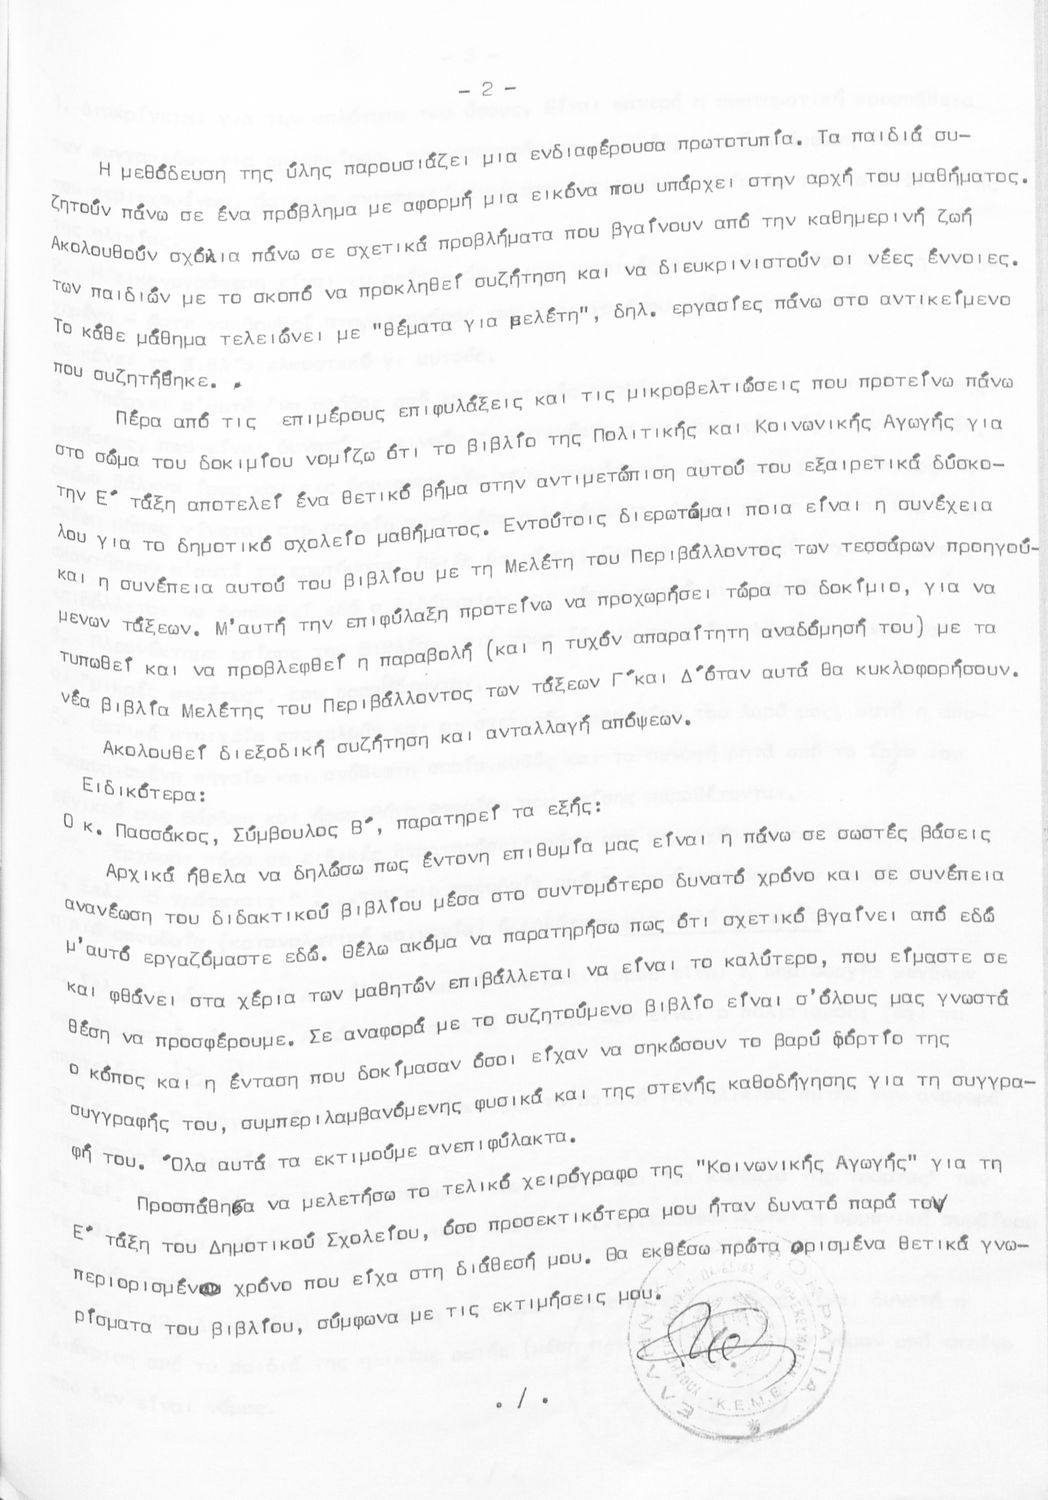 - 2 -
Η μεθόδευση της ύλης παρουσιάζει μια ενδιαφέρουσα πρωτοτυπία. Τα παιδιά συ-
ζητούν πάνω σε ένα πρόβλημα με αφορμή μια εικόνα που υπάρχει στην αρχή του μαθήματος.
Ακολουθούν σχόλια πάνω σε σχετικά προβλήματα που βγαίνουν από την καθημερινή ζωή
των παιδιών με το σκοπό να προκληθεί συζήτηση και να διευκρινιστούν οι νέες έννοιες.
Το κάθε μάθημα τελειώνει με "θέματα για μελέτη", δηλ. εργασίες πάνω στο αντικείμενο
που συζητήθηκε.
Πέρα από τις επιμέρους επιφυλάξεις και τις μικροβελτιώσεις που προτείνω πάνω
στο σώμα του δοκιμίου νομίζω ότι το βιβλίο της Πολιτικής και Κοινωνικής Αγωγής για
την Ε΄ τάξη αποτελεί ένα θετικό βήμα στην αντιμετώπιση αυτού του εξαιρετικά δύσκο-
λου για το δημοτικό σχολείο μαθήματος. Εντούτοις διερωτώμαι ποια είναι η συνέχεια
και η συνέπεια αυτού του βιβλίου με τη Μελέτη του Περιβάλλοντος των τεσσάρων προηγού-
μενων τάξεων. Μ'αυτή την επιφύλαξη προτείνω να προχωρήσει τώρα το δοκίμιο, για να
τυπωθεί και να προβλεφθεί η παραβολή (και η τυχόν απαραίτητη αναδόμησή του) με τα
νέα βιβλία Μελέτης του Περιβάλλοντος των τάξεων Γ΄και Δ΄όταν αυτά θα κυκλοφορήσουν.
Ακολουθεί διεξοδική συζήτηση και ανταλλαγή απόψεων.
Ειδικότερα:
Ο κ. Πασσάκος, Σύμβουλος Β΄, παρατηρεί τα εξής:
Αρχικά ήθελα να δηλώσω πως έντονη επιθυμία μας είναι η πάνω σε σωστές βάσεις
ανανέωση του διδακτικού βιβλίου μέσα στο συντομότερο δυνατό χρόνο και σε συνέπεια
μ'αυτό εργαζόμαστε εδώ. Θέλω ακόμα να παρατηρήσω πως ότι σχετικό βγαίνει από εδώ
και φθάνει στα χέρια των μαθητών επιβάλλεται να είναι το καλύτερο, που είμαστε σε
θέση να προσφέρουμε. Σε αναφορά με το συζητούμενο βιβλίο είναι σ'όλους μας γνωστά
ο κόπος και η ένταση που δοκίμασαν όσοι είχαν να σηκώσουν το βαρύ φόρτίο της
συγγραφής του, συμπεριλαμβανόμενης φυσικά και της στενής καθοδήγησης για τη συγγρα-
φή του. Όλα αυτά τα εκτιμούμε ανεπιφύλακτα.
Προσπάθησα να μελετήσω το τελικό χειρόγραφο της "Κοινωνικής Αγωγής" για τη
Ε΄ τάξη του Δημοτικού Σχολείου, όσο προσεκτικότερα μου ήταν δυνατό παρά τον
περιορισμένο χρόνο που είχα στη διάθεσή μου. Θα εκθέσω πρώτα ορισμένα θετικά γνω-
ρίσματα του βιβλίου, σύμφωνα με τις εκτιμήσεις μου.
ΕΛΛΗΝΙΚΗ ΔΗΜΟΚΡΑΤΙΑ
Κ.Ε.Μ.Ε.
. / .